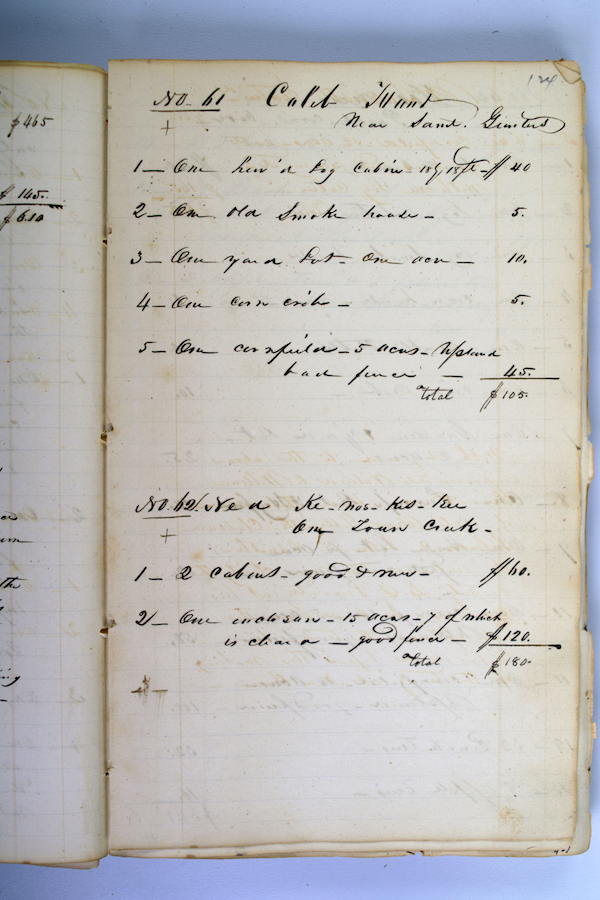 $465
$ 145.
$ 610
ce
the
ing
124
No. 61 Caleb
Near Sand.
+
1 — One hew'd Log Cabin - 18 by 18 ft - $ 40
2 — One old Smoke house - 5.
3 — One yard Lot - One acre — 10.
4 — One corn crib — 5.
5 — One cornfield - 5 acres - Upland
bad fence — 45.
Total $ 105.
No. 62. Ned Ke-nos-kis-kee
On Town Creek -
+
1 — 2 cabins - good & new - $ 60.
2 — One inclosure - 15 acres - 7 of which
is clear'd — good fence — $ 120.
Total $ 180.